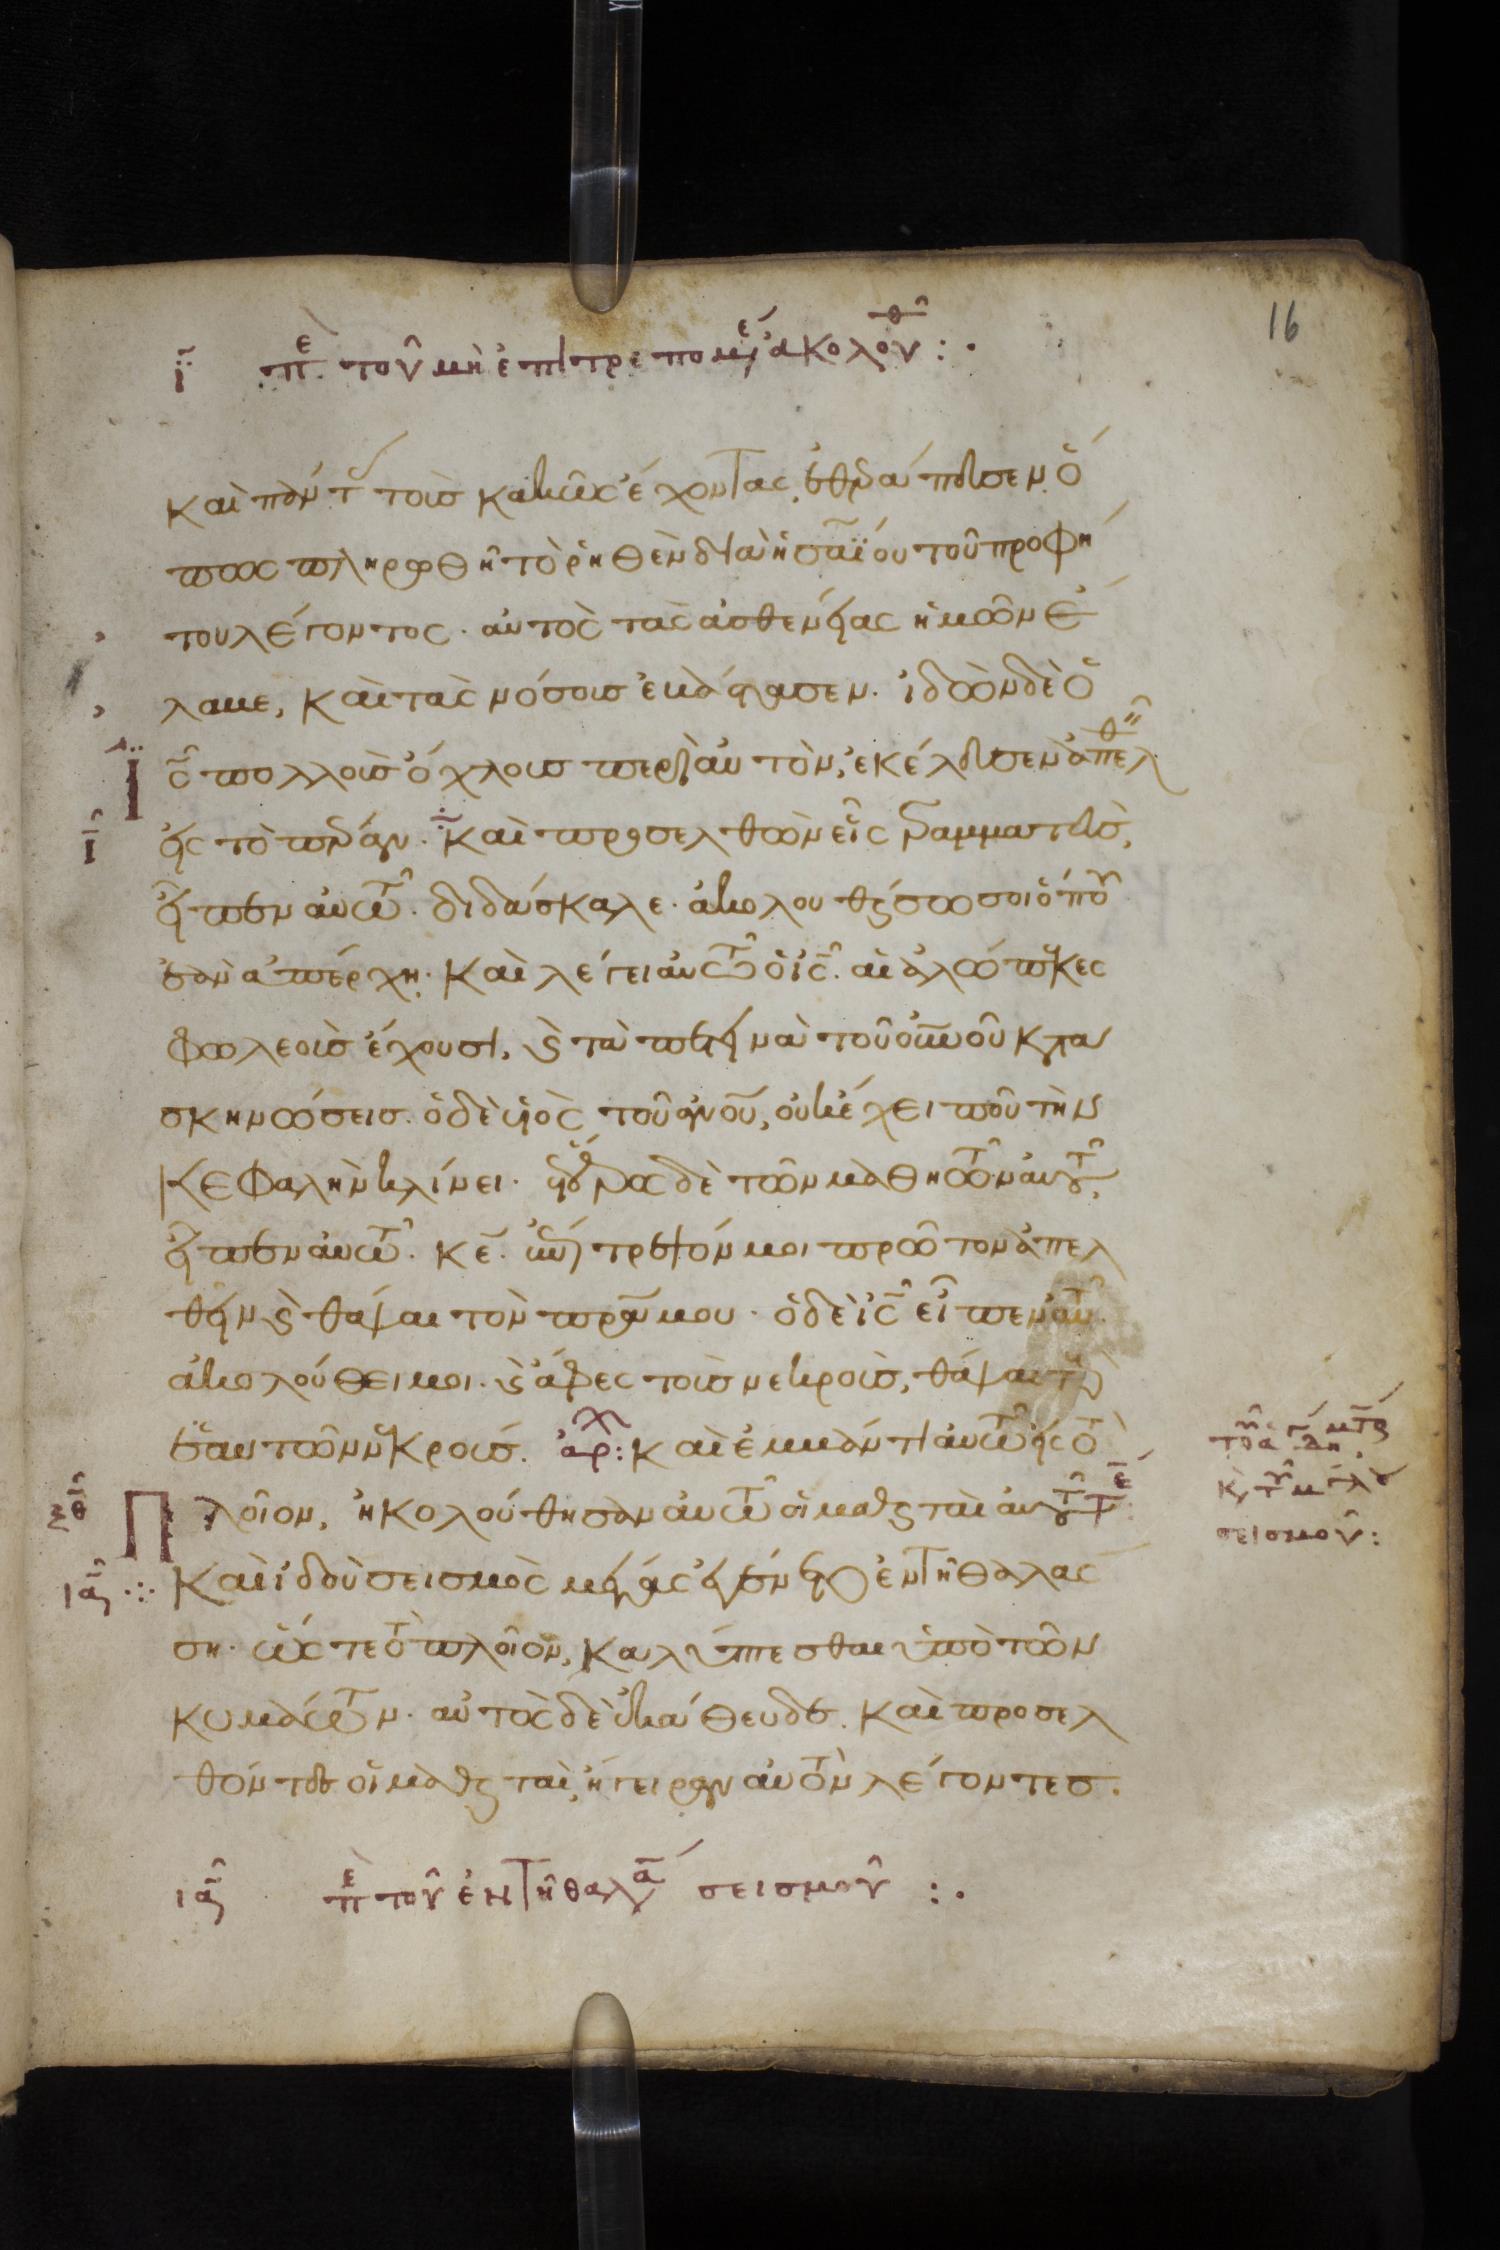 ι πε τοῦ μὴ ἐπιτρεπομέ ἀκολουθ :·
16
καὶ πάντ τοὺσ κακῶς ἔχοντας, ἐθεράπευσεν. ὅ
πως πληρωθῆ τὸ ῥηθὲν διὰ ἡσαΐου τοῦ προφή
του λέγοντος. αὐτὸς τὰς ἀσθενείας ἡμῶν ἔ
λαβε, καὶ τὰς νόσουσ ἐβάστασεν. ἰδὼν δὲ ὁ
ις πολλοὺσ ὄχλουσ περὶ αὐτὸν, ἐκέλευσεν ἀπελθ
ι εἰς τὸ πέραν. καὶ προσελθὼν εἷς γραμματεὺσ,
εἶπεν αὐτῶ. διδάσκαλε. ἀκολουθήσω σοι ὅπου
ἐὰν ἀπέρχη. καὶ λέγει αὐτῶ ὁ ις. αἱ ἀλώπεκες
φωλεοὺσ ἔχουσι, καὶ τὰ πετεινὰ τοῦ οὐνοῦ κατα
σκηνώσεισ. ὁ δὲ υἱὸς τοῦ ανου, οὐκ ἔχει ποῦ τὴν
κεφαλὴν κλίνει. ἕτερος δὲ τῶν μαθητῶν αὐτοῦ,
εἶπεν αὐτῶ. κε. ἐπίτρεψόν μοι πρῶτον ἀπελ
θεῖν καὶ θάψαι τὸν πρα μου. ὁ δὲ ις εἶπεν αὐτῶ.
ἀκολούθει μοι. καὶ ἄφες τοὺσ νεκροὺσ, θάψαι τοὺς
ἑαυτῶν νεκρούσ. ἀρχ: καὶ ἐμβάντι αὐτῶ εἰς τὸ
ξθ πλοῖον, ἠκολούθησαν αὐτῶ οἱ μαθηταὶ αὐτοῦ τε
ια καὶ ἰδοὺ σεισμὸς μέγας ἐγένετο ἐν τῆ θαλάσ
ση. ὥστε τὸ πλοῖον, καλύπτεσθαι ὑπὸ τῶν
κυμάτων. αὐτὸς δὲ ἐκάθευδε. καὶ προσελ
θόντες οἱ μαθηταὶ, ἤγειραν αὐτὸν λέγοντεσ.
σεισμοῦ:
ια πε τοῦ ἐν τῆ θαλα σεισμοῦ :·